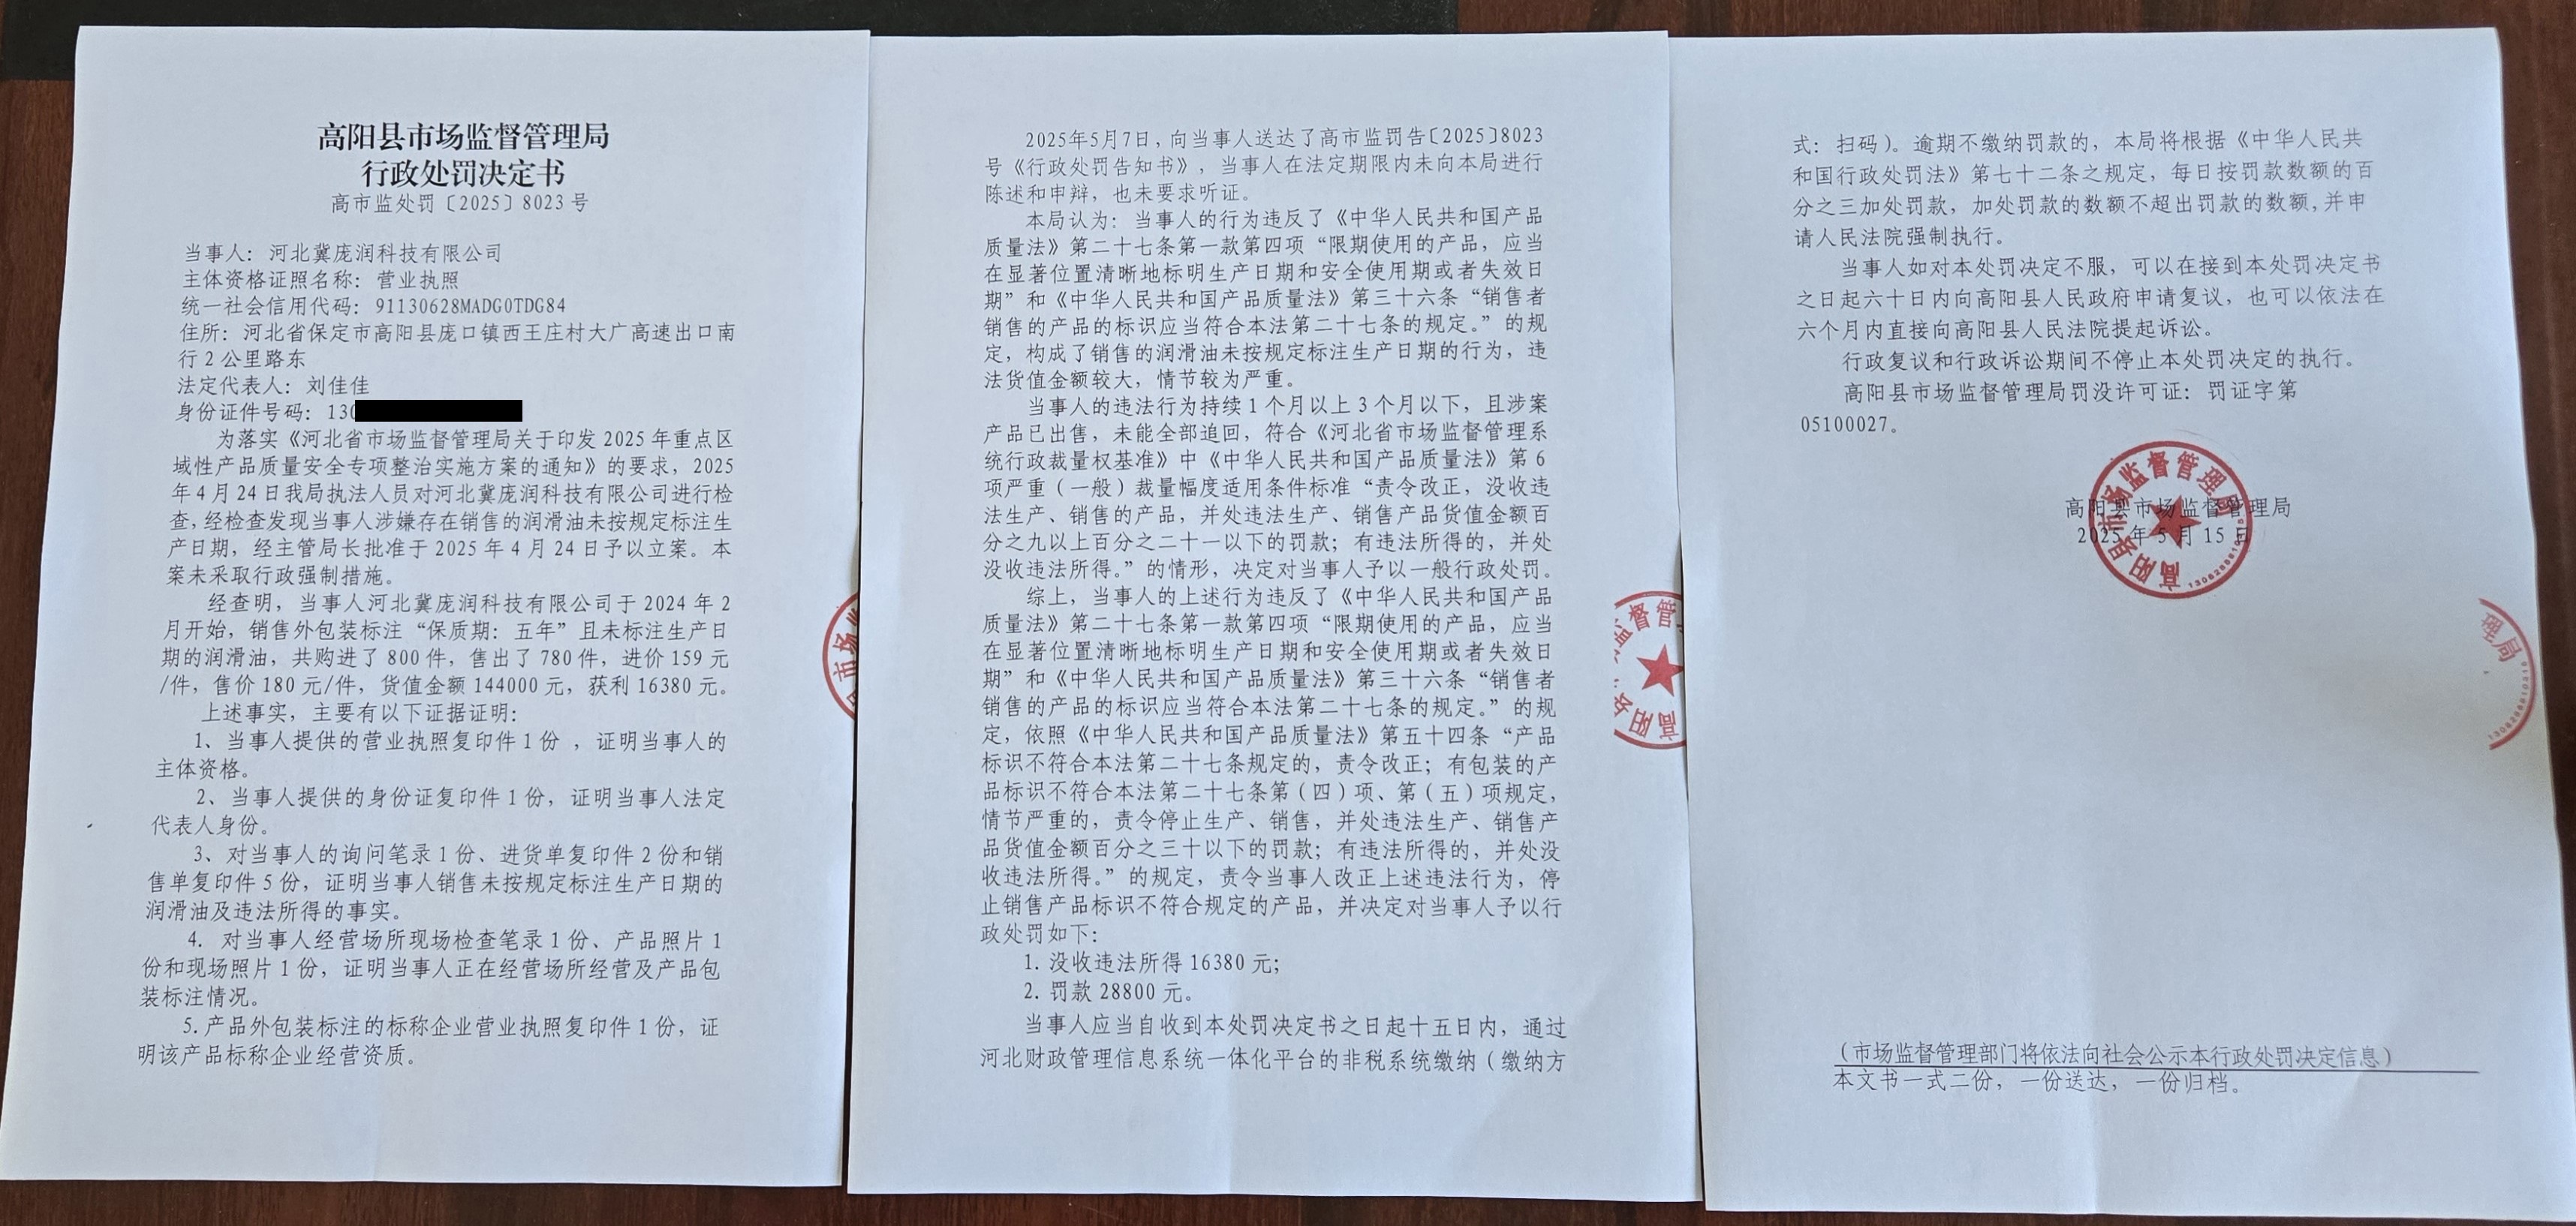 高阳县市场监督管理局
行政处罚决定书
高市监处罚〔2025〕8023号
当事人：河北冀庞润科技有限公司
主体资格证照名称：营业执照
统一社会信用代码：91130628MADG0TDG84
住所：河北省保定市高阳县庞口镇西王庄村大广高速出口南
行2公里路东
法定代表人：刘佳佳
身份证件号码：130
为落实《河北省市场监督管理局关于印发2025年重点区
域性产品质量安全专项整治实施方案的通知》的要求，2025
年4月24日我局执法人员对河北冀庞润科技有限公司进行检
查，经检查发现当事人涉嫌存在销售的润滑油未按规定标注生
产日期，经主管局长批准于2025年4月24日予以立案。本
案未采取行政强制措施。
经查明，当事人河北冀庞润科技有限公司于2024年2
月开始，销售外包装标注“保质期：五年”且未标注生产日
期的润滑油，共购进了800件，售出了780件，进价159元
/件，售价180元/件，货值金额144000元，获利16380元。
上述事实，主要有以下证据证明：
1、当事人提供的营业执照复印件1份 ，证明当事人的
主体资格。
2、当事人提供的身份证复印件1份，证明当事人法定
代表人身份。
3、对当事人的询问笔录1份、进货单复印件2份和销
售单复印件5份，证明当事人销售未按规定标注生产日期的
润滑油及违法所得的事实。
4. 对当事人经营场所现场检查笔录1份、产品照片1
份和现场照片1份，证明当事人正在经营场所经营及产品包
装标注情况。
5.产品外包装标注的标称企业营业执照复印件1份，证
明该产品标称企业经营资质。
2025年5月7日，向当事人送达了高市监罚告〔2025〕8023
号《行政处罚告知书》，当事人在法定期限内未向本局进行
陈述和申辩，也未要求听证。
本局认为：当事人的行为违反了《中华人民共和国产品
质量法》第二十七条第一款第四项“限期使用的产品，应当
在显著位置清晰地标明生产日期和安全使用期或者失效日
期”和《中华人民共和国产品质量法》第三十六条“销售者
销售的产品的标识应当符合本法第二十七条的规定。”的规
定，构成了销售的润滑油未按规定标注生产日期的行为，违
法货值金额较大，情节较为严重。
当事人的违法行为持续1个月以上3个月以下，且涉案
产品已出售，未能全部追回，符合《河北省市场监督管理系
统行政裁量权基准》中《中华人民共和国产品质量法》第6
项严重（一般）裁量幅度适用条件标准“责令改正，没收违
法生产、销售的产品，并处违法生产、销售产品货值金额百
分之九以上百分之二十一以下的罚款；有违法所得的，并处
没收违法所得。”的情形，决定对当事人予以一般行政处罚。
综上，当事人的上述行为违反了《中华人民共和国产品
质量法》第二十七条第一款第四项“限期使用的产品，应当
在显著位置清晰地标明生产日期和安全使用期或者失效日
期”和《中华人民共和国产品质量法》第三十六条“销售者
销售的产品的标识应当符合本法第二十七条的规定。”的规
定，依照《中华人民共和国产品质量法》第五十四条“产品
标识不符合本法第二十七条规定的，责令改正；有包装的产
品标识不符合本法第二十七条第（四）项、第（五）项规定，
情节严重的，责令停止生产、销售，并处违法生产、销售产
品货值金额百分之三十以下的罚款；有违法所得的，并处没
收违法所得。”的规定，责令当事人改正上述违法行为，停
止销售产品标识不符合规定的产品，并决定对当事人予以行
政处罚如下：
1. 没收违法所得16380元；
2. 罚款28800元。
当事人应当自收到本处罚决定书之日起十五日内，通过
河北财政管理信息系统一体化平台的非税系统缴纳（缴纳方
式：扫码）。逾期不缴纳罚款的，本局将根据《中华人民共
和国行政处罚法》第七十二条之规定，每日按罚款数额的百
分之三加处罚款，加处罚款的数额不超出罚款的数额，并申
请人民法院强制执行。
当事人如对本处罚决定不服，可以在接到本处罚决定书
之日起六十日内向高阳县人民政府申请复议，也可以依法在
六个月内直接向高阳县人民法院提起诉讼。
行政复议和行政诉讼期间不停止本处罚决定的执行。
高阳县市场监督管理局罚没许可证：罚证字第
05100027。
高阳县市场监督管理局
2025年5月15日
高阳县市场监督管理局
（市场监督管理部门将依法向社会公示本行政处罚决定信息）
本文书一式二份，一份送达，一份归档。